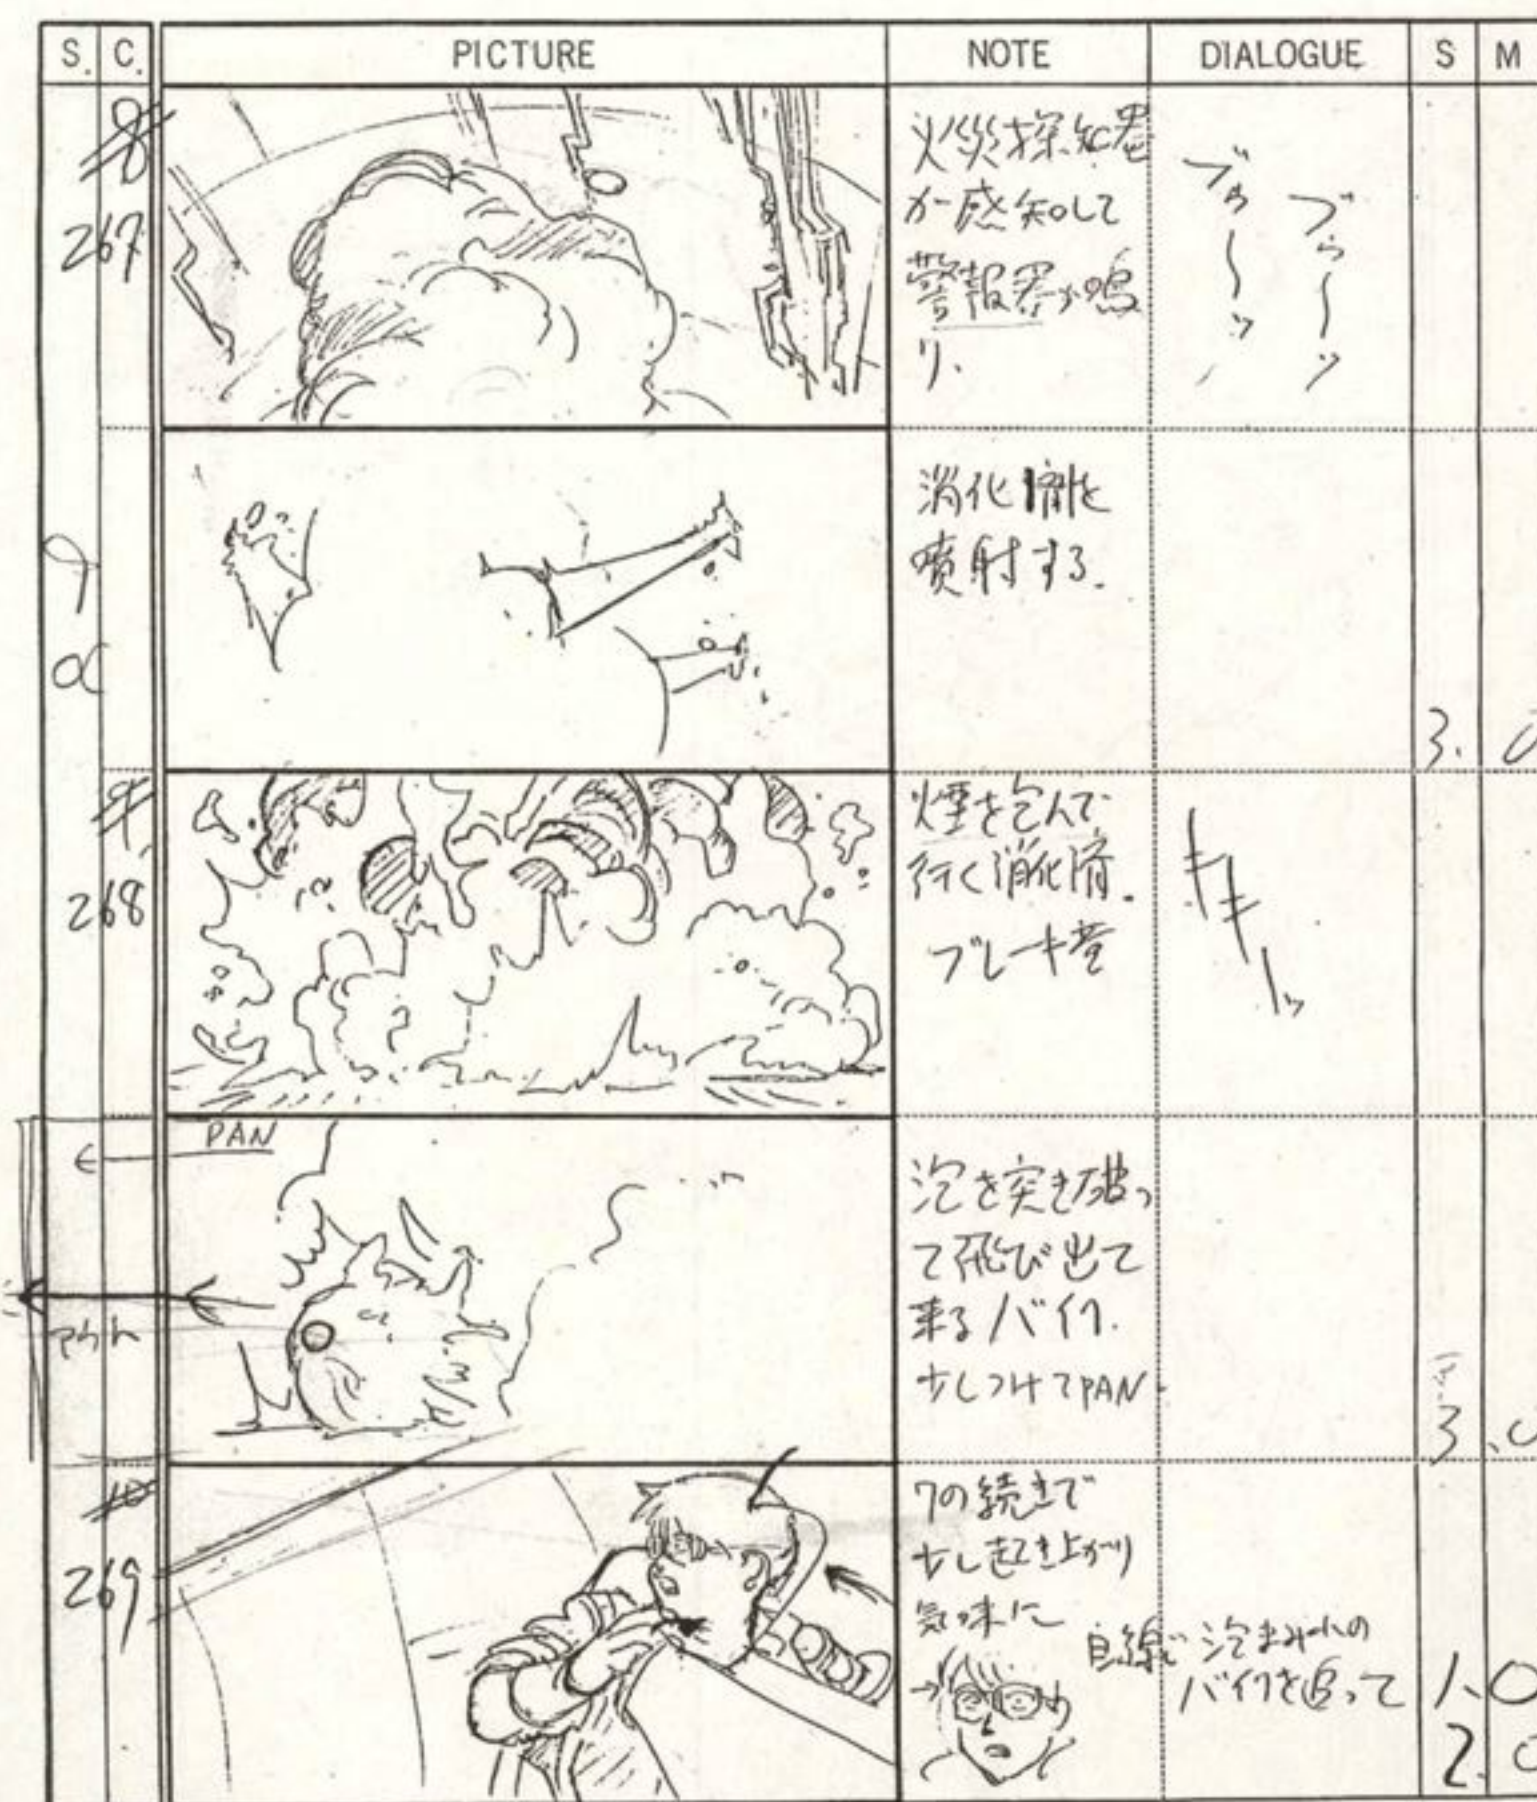 S. C. PICTURE NOTE DIALOGUE S M
8
267
火災探知器
が感知して
警報器が鳴
り、
ブゥ〜ッ
ブゥ〜ッ
消化剤を
噴射する。
3. 0
9
268
煙を包んで
行く消化剤。
ブレーキ音
キキーッ
PAN
アウト
泡を突き破っ
て飛び出て
来るバイク。
少しつけてPAN
3.0
10
269
7の続きで
少し起き上がり
気味に
目線で 泡まみれの
バイクを追って
1.0
2.0